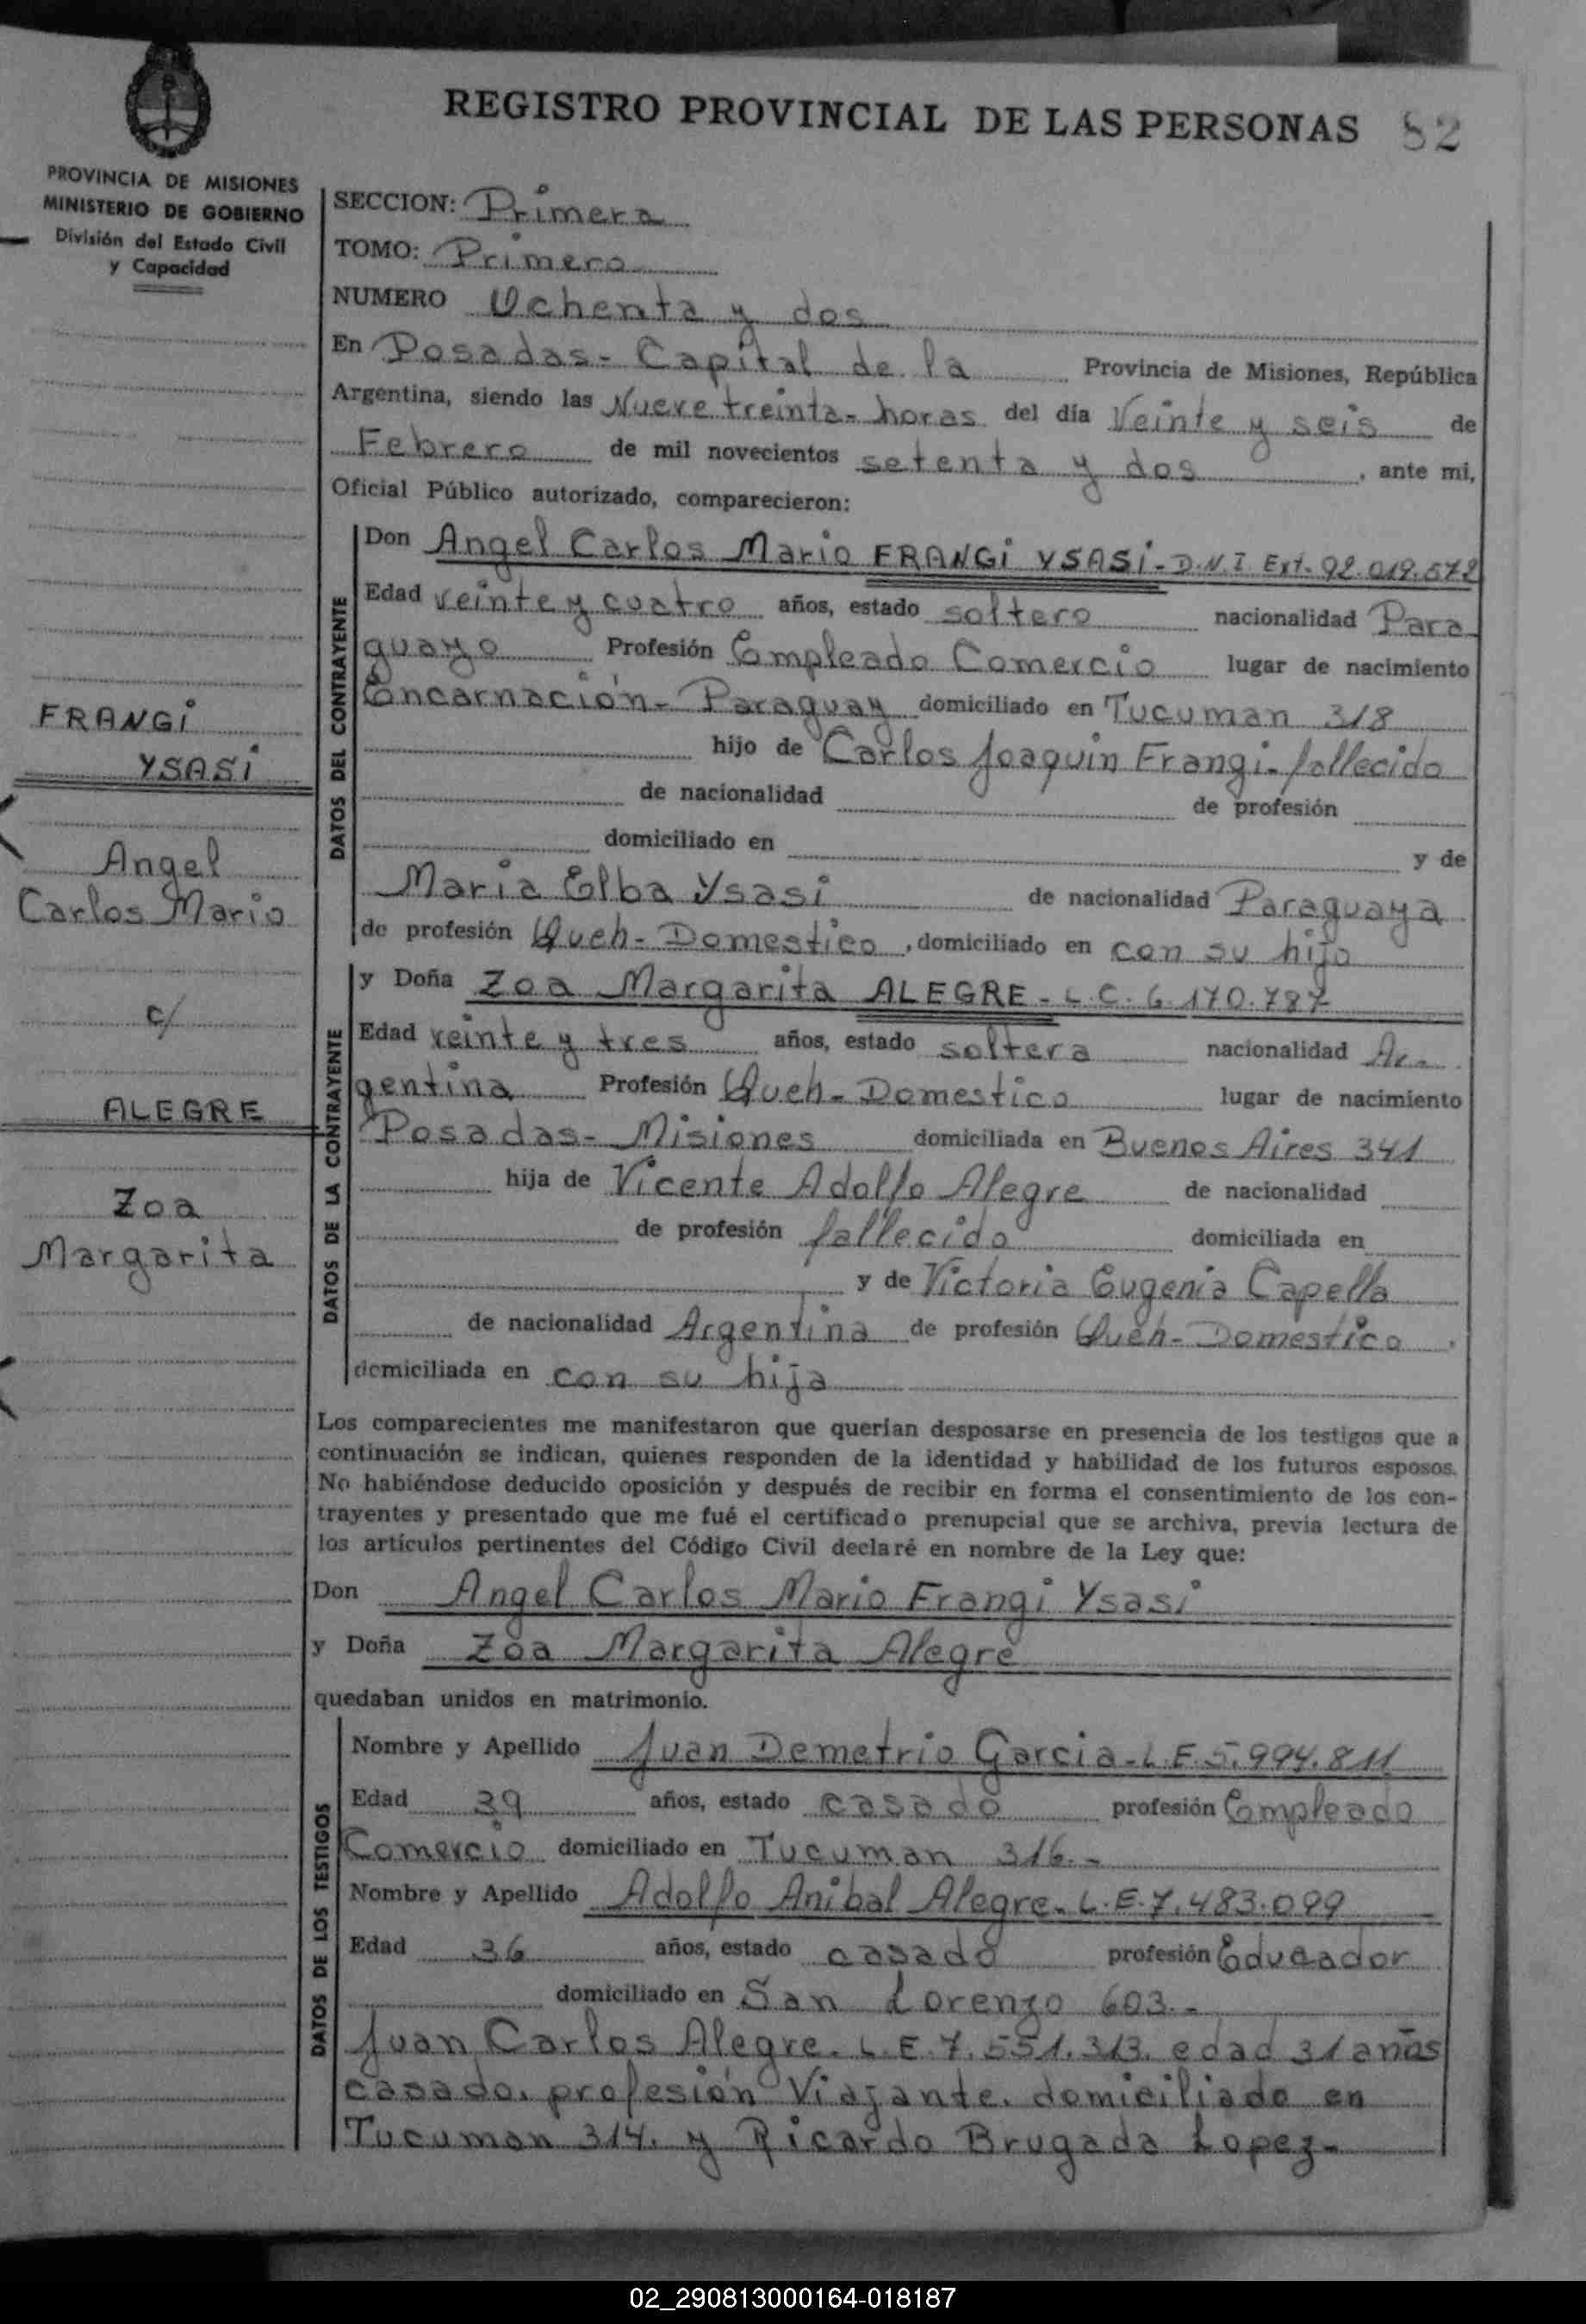 REGISTRO PROVINCIAL DE LAS PERSONAS 82
PROVINCIA DE MISIONES
MINISTERIO DE GOBIERNO
División del Estado Civil
y Capacidad
FRANGI
YSASI
Angel
Carlos Mario
c/
ALEGRE
Zoa
Margarita
SECCION: Primera
TOMO: Primero
NUMERO Ochenta y dos
En Posadas - Capital de la Provincia de Misiones, República
Argentina, siendo las Nueve treinta - horas del día Veinte y seis de
Febrero de mil novecientos setenta y dos, ante mi,
Oficial Público autorizado, comparecieron:
DATOS DEL CONTRAYENTE
Don Angel Carlos Mario FRANGI YSASI - D.N.I Ext. 92.019.572
Edad veinte y cuatro años, estado soltero nacionalidad Para
guayo Profesión Empleado Comercio lugar de nacimiento
Encarnación - Paraguay domiciliado en Tucuman 318
hijo de Carlos Joaquin Frangi - fallecido
de nacionalidad de profesión
domiciliado en y de
Maria Elba Ysasi de nacionalidad Paraguaya
de profesión Queh - Domestico, domiciliado en con su hijo
DATOS DE LA CONTRAYENTE
y Doña Zoa Margarita ALEGRE - L.C. 6.170.787
Edad veinte y tres años, estado soltera nacionalidad Ar-
gentina Profesión Queh - Domestico lugar de nacimiento
Posadas - Misiones domiciliada en Buenos Aires 341
hija de Vicente Adolfo Alegre de nacionalidad
de profesión fallecido domiciliada en
y de Victoria Eugenia Capella
de nacionalidad Argentina de profesión Queh - Domestico.
domiciliada en con su hija
Los comparecientes me manifestaron que querían desposarse en presencia de los testigos que a
continuación se indican, quienes responden de la identidad y habilidad de los futuros esposos.
No habiéndose deducido oposición y después de recibir en forma el consentimiento de los con-
trayentes y presentado que me fué el certificado prenupcial que se archiva, previa lectura de
los artículos pertinentes del Código Civil declaré en nombre de la Ley que:
Don Angel Carlos Mario Frangi Ysasi
y Doña Zoa Margarita Alegre
quedaban unidos en matrimonio.
DATOS DE LOS TESTIGOS
Nombre y Apellido Juan Demetrio Garcia - L.E. 5.994.811
Edad 39 años, estado casado profesión Empleado
Comercio domiciliado en Tucuman 316.-
Nombre y Apellido Adolfo Anibal Alegre - L.E. 7.483.099
Edad 36 años, estado casado profesión Educador
domiciliado en San Lorenzo 603.-
Juan Carlos Alegre. L.E. 7.551.313. edad 31 años
casado. profesión Viajante. domiciliado en
Tucuman 314. y Ricardo Brugada Lopez-
02_290813000164-018187